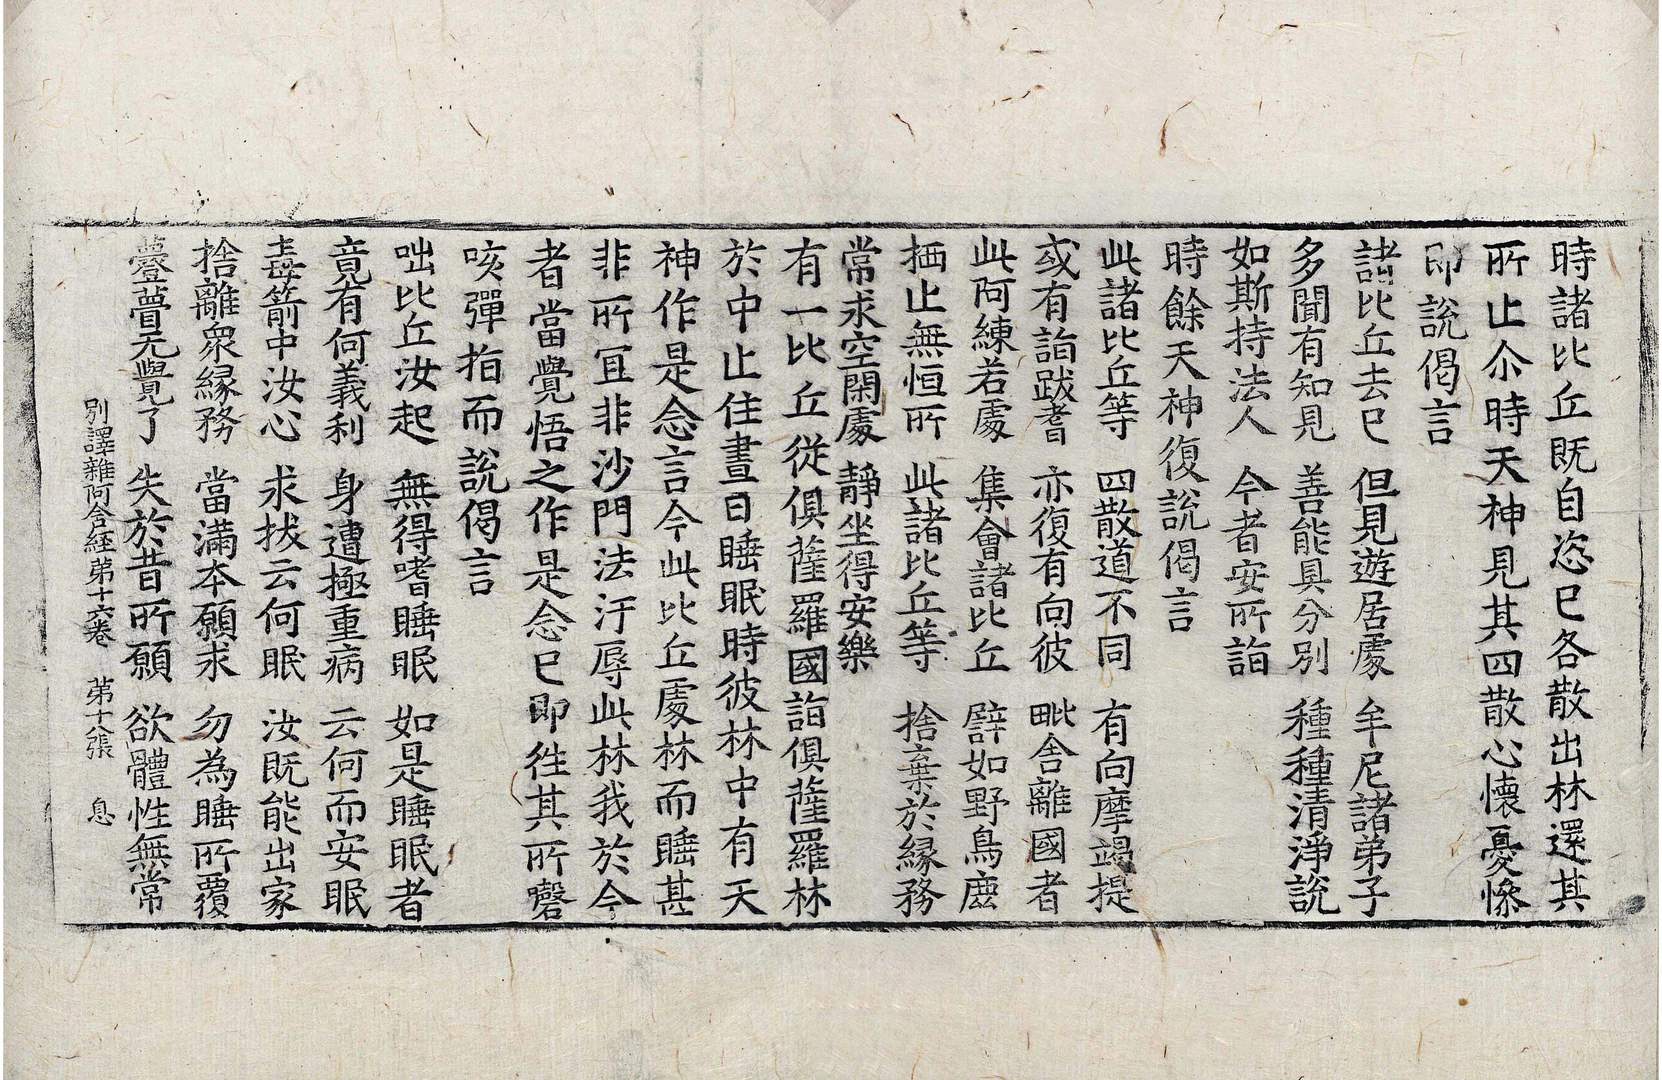 時諸比丘既自恣已各散出林還其
所止尒時天神見其四散心懷憂慘
即說偈言
諸比丘去已　但見遊居處　牟尼諸弟子
多聞有知見　善能具分別　種種清淨說
如斯持法人　今者安所詣
時餘天神復說偈言
此諸比丘等　四散道不同　有向摩竭提
或有詣跋耆　亦復有向彼　毗舍離國者
此阿練若處　集會諸比丘　譬如野鳥鹿
栖止無恒所　此諸比丘等　捨棄於緣務
常求空閑處　靜坐得安樂
有一比丘從俱薩羅國詣俱薩羅林
於中止住晝日睡眠時彼林中有天
神作是念言今此比丘處林而睡甚
非所宜非沙門法汙辱此林我於今
者當覺悟之作是念已即徃其所謦
咳彈指而說偈言
咄比丘汝起　無得嗜睡眠　如是睡眠者
竟有何義利　身遭極重病　云何而安眠
毒箭中汝心　求拔云何眠　汝既能出家
捨離衆緣務　當滿本願求　勿為睡所覆
夢無覺了　失於昔所願　欲體性無常
別譯雜阿含經第十六卷　第十八張　息